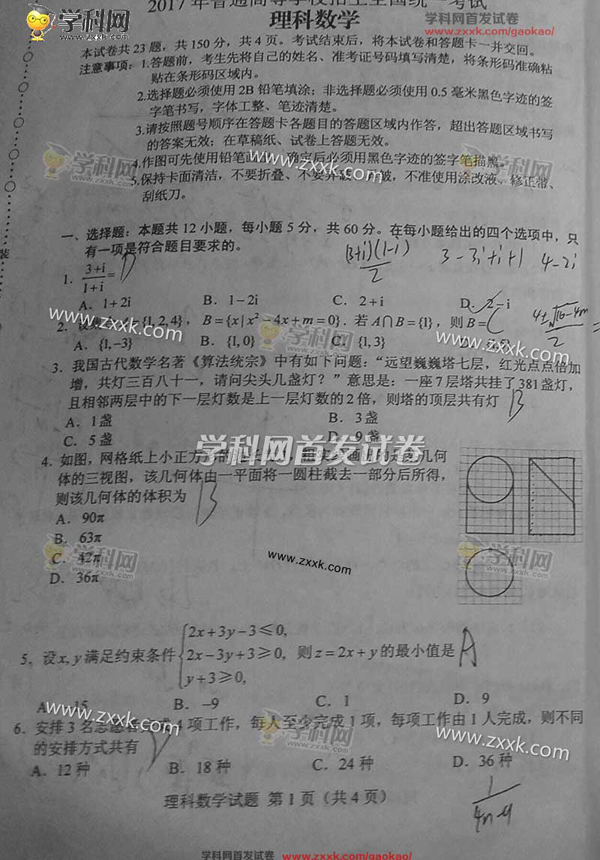 学科网首发试卷
www.zxxk.com/gaokao/
2017年普通高等学校招生全国统一考试
理科数学
本试卷共 23 题,共 150 分,共 4 页。考试结束后,将本试卷和答题卡一并交回。
注意事项:1.答题前,考生先将自己的姓名、准考证号码填写清楚,将条形码准确粘
贴在条形码区域内。
2.选择题必须使用 2B 铅笔填涂;非选择题必须使用 0.5 毫米黑色字迹的签
字笔书写,字体工整、笔迹清楚。
3.请按照题号顺序在答题卡各题目的答题区域内作答,超出答题区域书写
的答案无效;在草稿纸、试卷上答题无效。
4.作图可先使用铅笔画出,确定后必须用黑色字迹的签字笔描黑。
5.保持卡面清洁,不要折叠、不要弄破、弄皱,不准使用涂改液、修正带、
刮纸刀。
学科网
www.zxxk.com
装
一、选择题:本题共 12 小题,每小题 5 分,共 60 分。在每小题给出的四个选项中,只
有一项是符合题目要求的。
(3+i)(1-i)/2 3-3i+i+1 4-2i
1. (3+i)/(1+i)= D
A. 1+2i B. 1-2i C. 2+i D. 2-i
2. A={1,2,4}, B={x|x²-4x+m=0}. 若 A∩B={1}, 则 B= C
A. {1,-3} B. {1,0} C. {1,3}
3. 我国古代数学名著《算法统宗》中有如下问题:“远望巍巍塔七层,红光点点倍加
增,共灯三百八十一,请问尖头几盏灯?”意思是:一座7层塔共挂了381盏灯,
且相邻两层中的下一层灯数是上一层灯数的2倍,则塔的顶层共有灯 B
A. 1盏 B. 3盏
C. 5盏 D. 9盏
学科网首发试卷
4. 如图,网格纸上小正方形的边长为1,粗实线画出的是某几何
体的三视图,该几何体由一平面将一圆柱截去一部分后所得,
则该几何体的体积为 B
A. 90π
B. 63π
C. 42π
D. 36π
学科网
www.zxxk.com
5. 设x,y满足约束条件{2x+3y-3≤0, 2x-3y+3≥0, y+3≥0, 则z=2x+y的最小值是 A
A. -15 B. -9 C. 1 D. 9
6. 安排 3 名志愿者完成 4 项工作,每人至少完成 1 项,每项工作由 1 人完成,则不同
的安排方式共有 D
A. 12 种 B. 18 种 C. 24 种 D. 36 种
www.zxxk.com
理科数学试题 第 1 页(共 4 页)
学科网首发试卷 www.zxxk.com/gaokao/